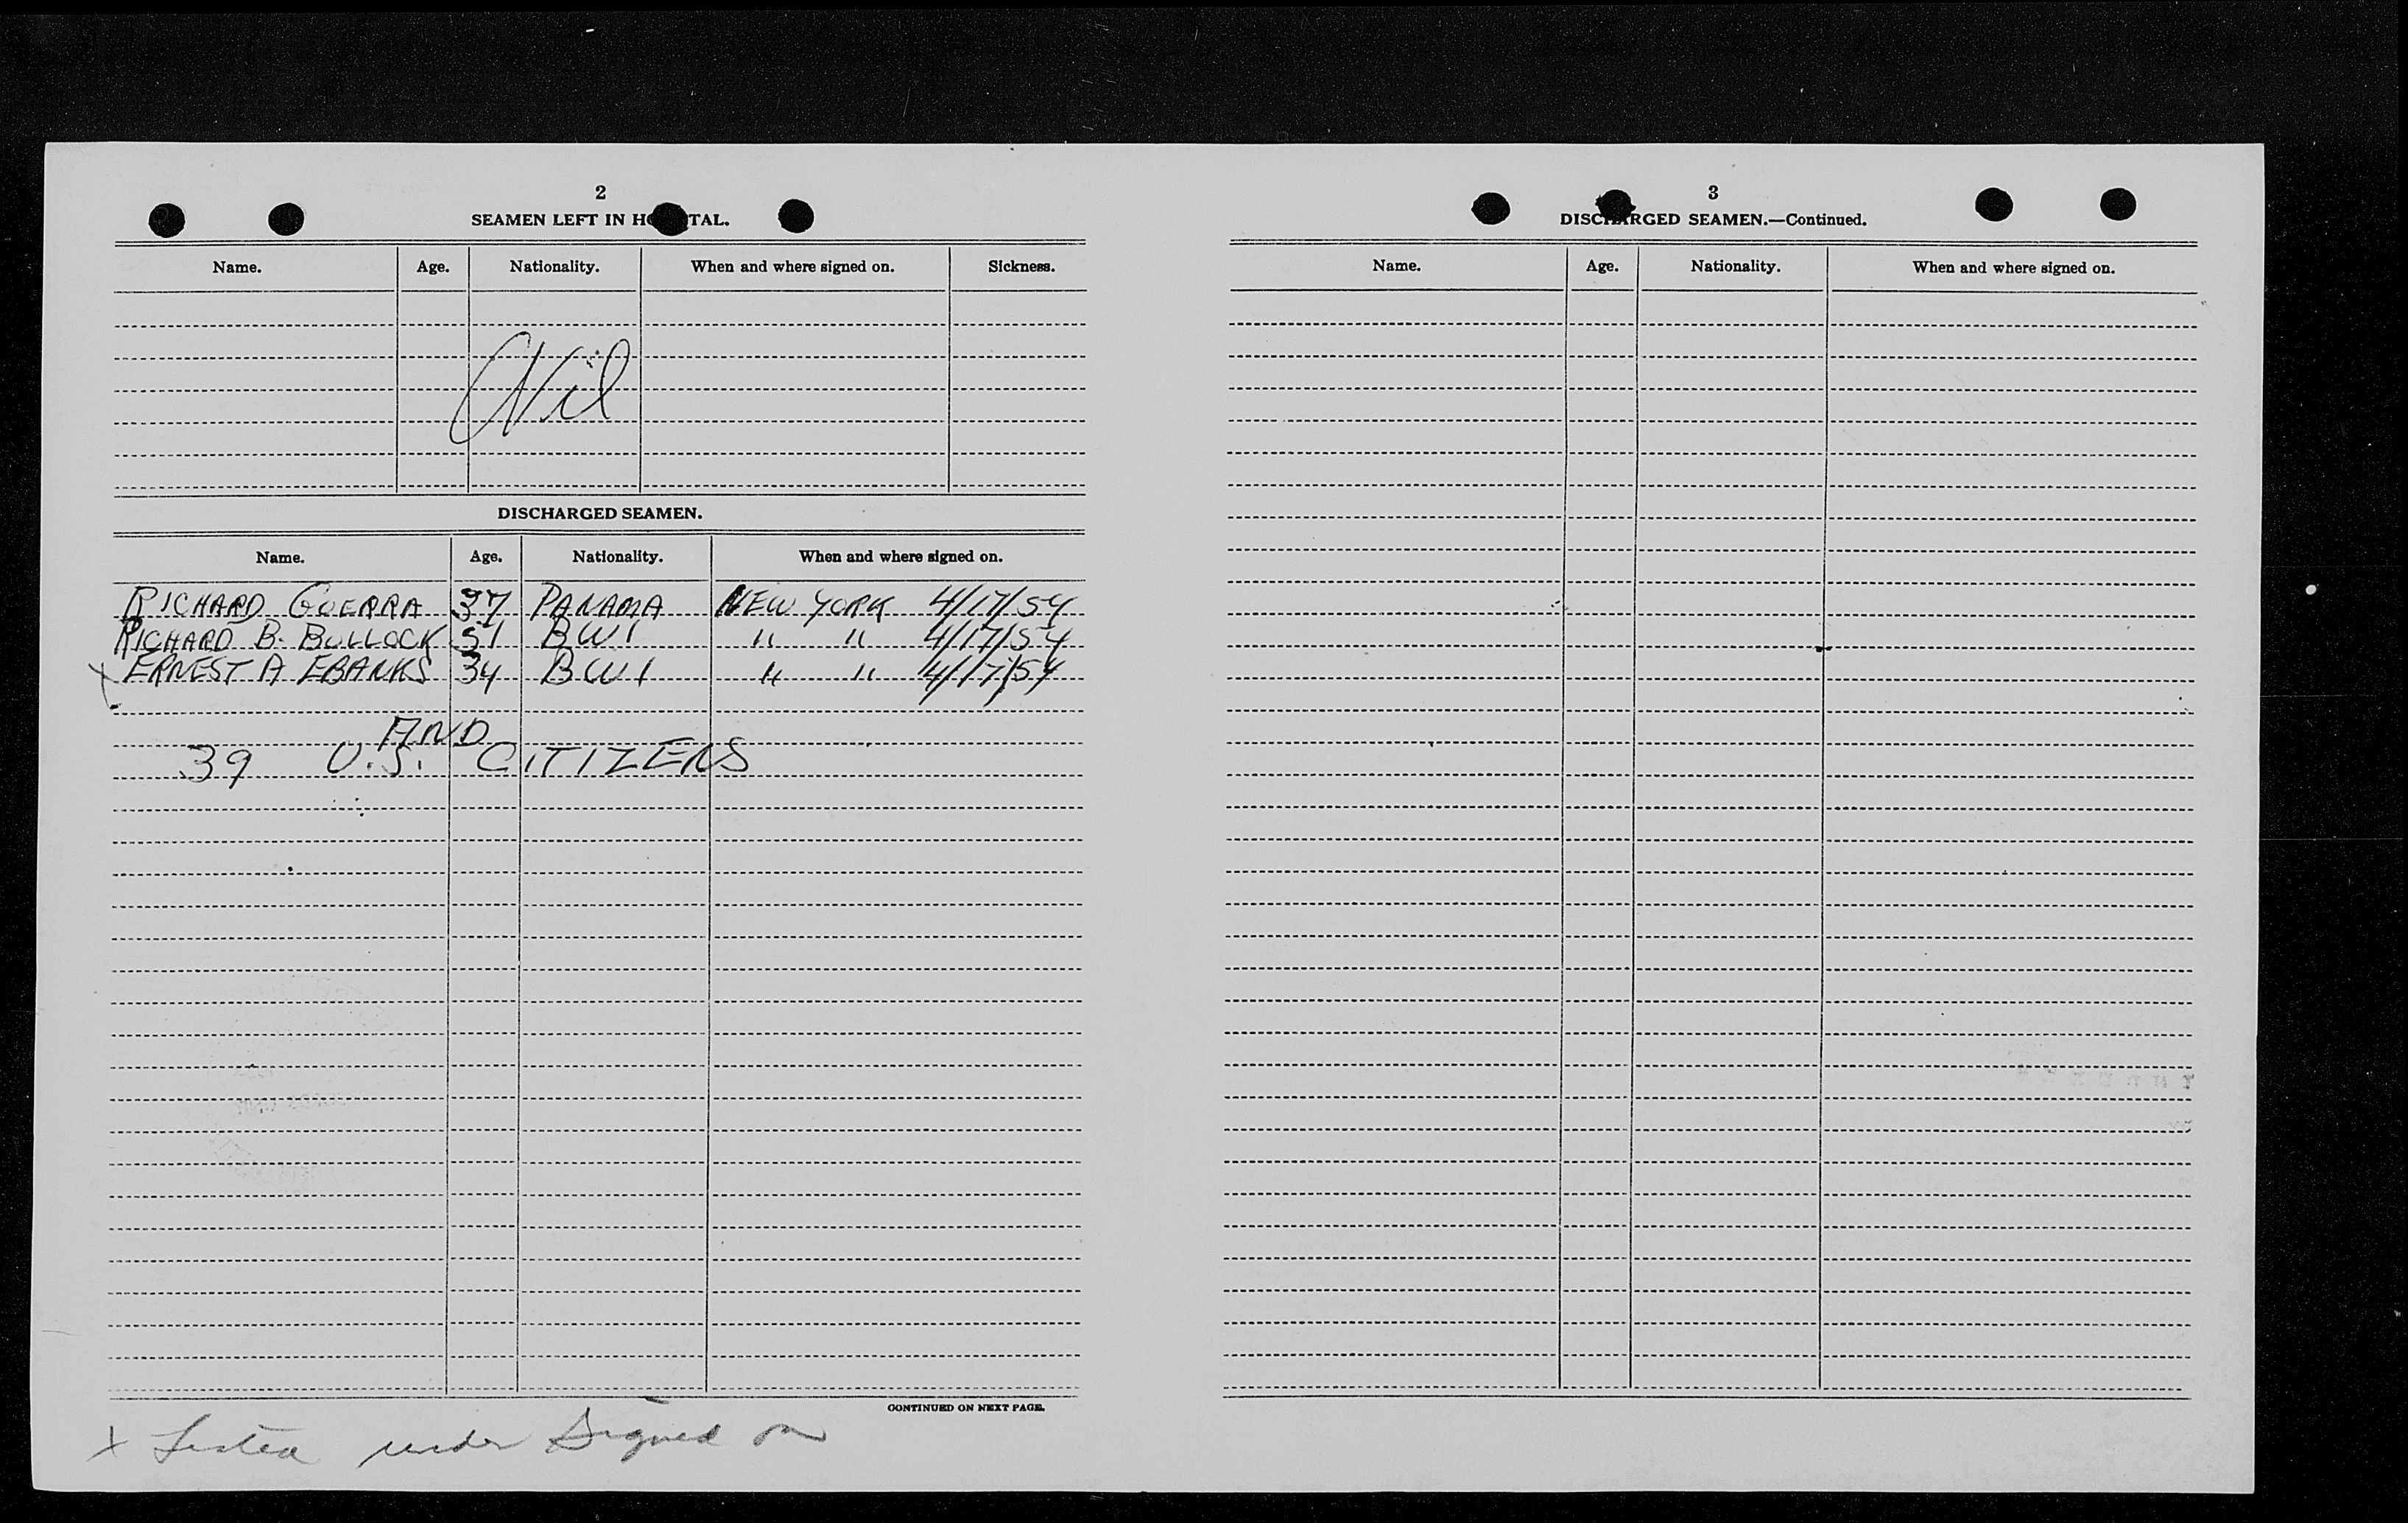 2
SEAMEN LEFT IN H TAL.
Name. Age. Nationality. When and where signed on. Sickness.
Nil
DISCHARGED SEAMEN.
Name. Age. Nationality. When and where signed on.
RICHARD GUERRA 37 PANAMA NEW YORK 4/17/54
RICHARD B. BULLOCK 51 BWI " " 4/17/54
x ERNEST A EBANKS 34 BWI " " 4/17/54
AND
39 U.S. CITIZENS
CONTINUED ON NEXT PAGE.
x Listed under Signed on
3
DISCHARGED SEAMEN.—Continued.
Name. Age. Nationality. When and where signed on.